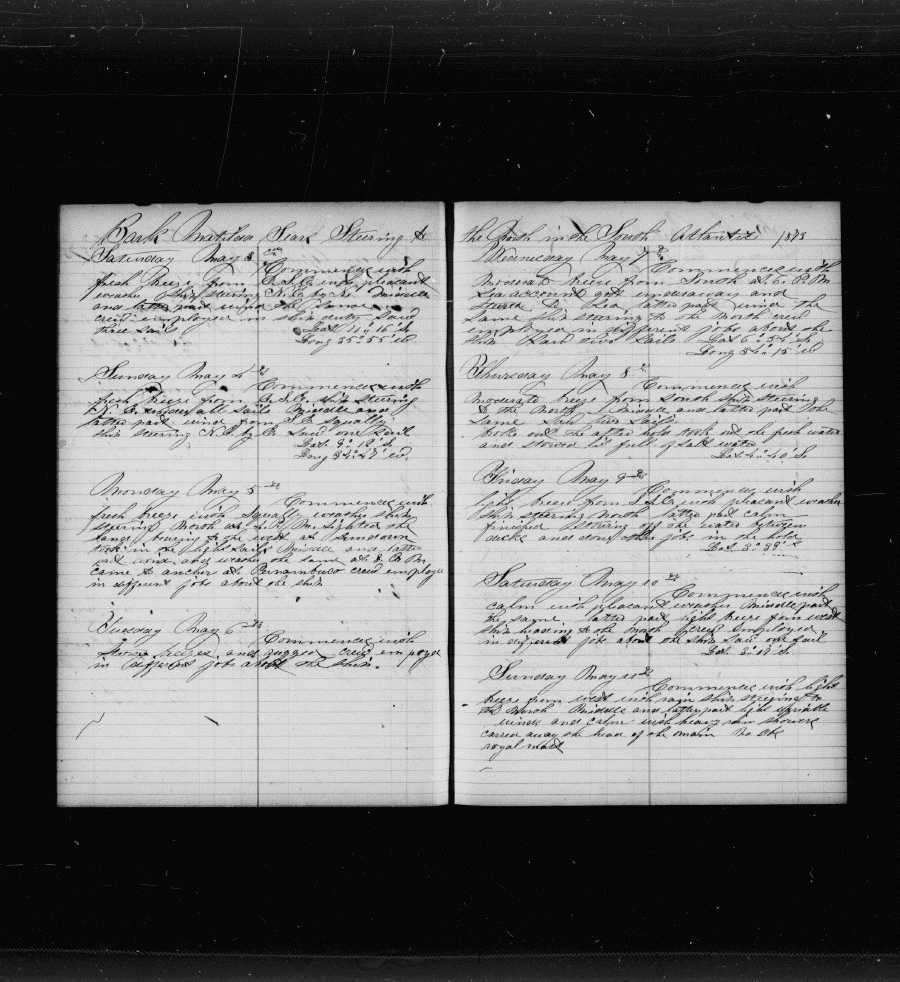 Bark Matilda Sears Steering to
Saturday May 3
Commences with
fresh breeze from E.S.E. with pleasant
weather ship steering N.E. by N. Middle
and latter part wind the same
crew employed in ship duty saw
three sail
Lat 11° 16' S
Long 35° 55' W
Sunday May 4
Commences with
fresh breeze from E.S.E. ship steering
N.E. under all sails Middle and
latter part wind from S.E. squally
ship steering N.E. by E. saw one sail
Lat 9° 19' S
Long 34° 47' W
Monday May 5
Commences with
fresh breeze with squally weather ship
steering North at P.M. sighted the
land bearing to the west at sundown
took in the light sails Middle and latter
part wind and weather the same at 8 P.M.
came to anchor at Pernambuco crew employed
in different jobs about the ship
Tuesday May 6
Commences with
strong breeze and rugged crew employed
in different jobs about the ship.
the North in the South Atlantic 1873
Wednesday May 7
Commences with
Moderate breeze from South at 6 P.M.
Sea account got underway and
steered to the latter part wind the
same ship steering to the North crew
employed in different jobs about the
ship saw five sails Lat 6° 54' S
Long 34° 15' W
Thursday May 8
Commences with
Moderate breeze from South ship steering
to the North Middle and latter part the
same saw two sails
broke out the after hold took out the fresh water
and stowed it full of salt water
Lat 4° 40' S
Friday May 9
Commences with
light breeze from S.S.E. with pleasant weather
ship steering North latter part calm
finished stowing off the water between
decks and done other jobs in the hold
Lat 3° 39' S
Saturday May 10
Commences with
calm with pleasant weather Middle part
the same latter part light breeze from west
ship heading to the North crew employed
in different jobs about the ship saw one sail
Lat 3° 19' S
Sunday May 11
Commences with light
breeze from west with rain ship steering to
the North Middle and latter part light variable
winds and calm with heavy rain showers
carried away the head of the main No Obs
royal mast